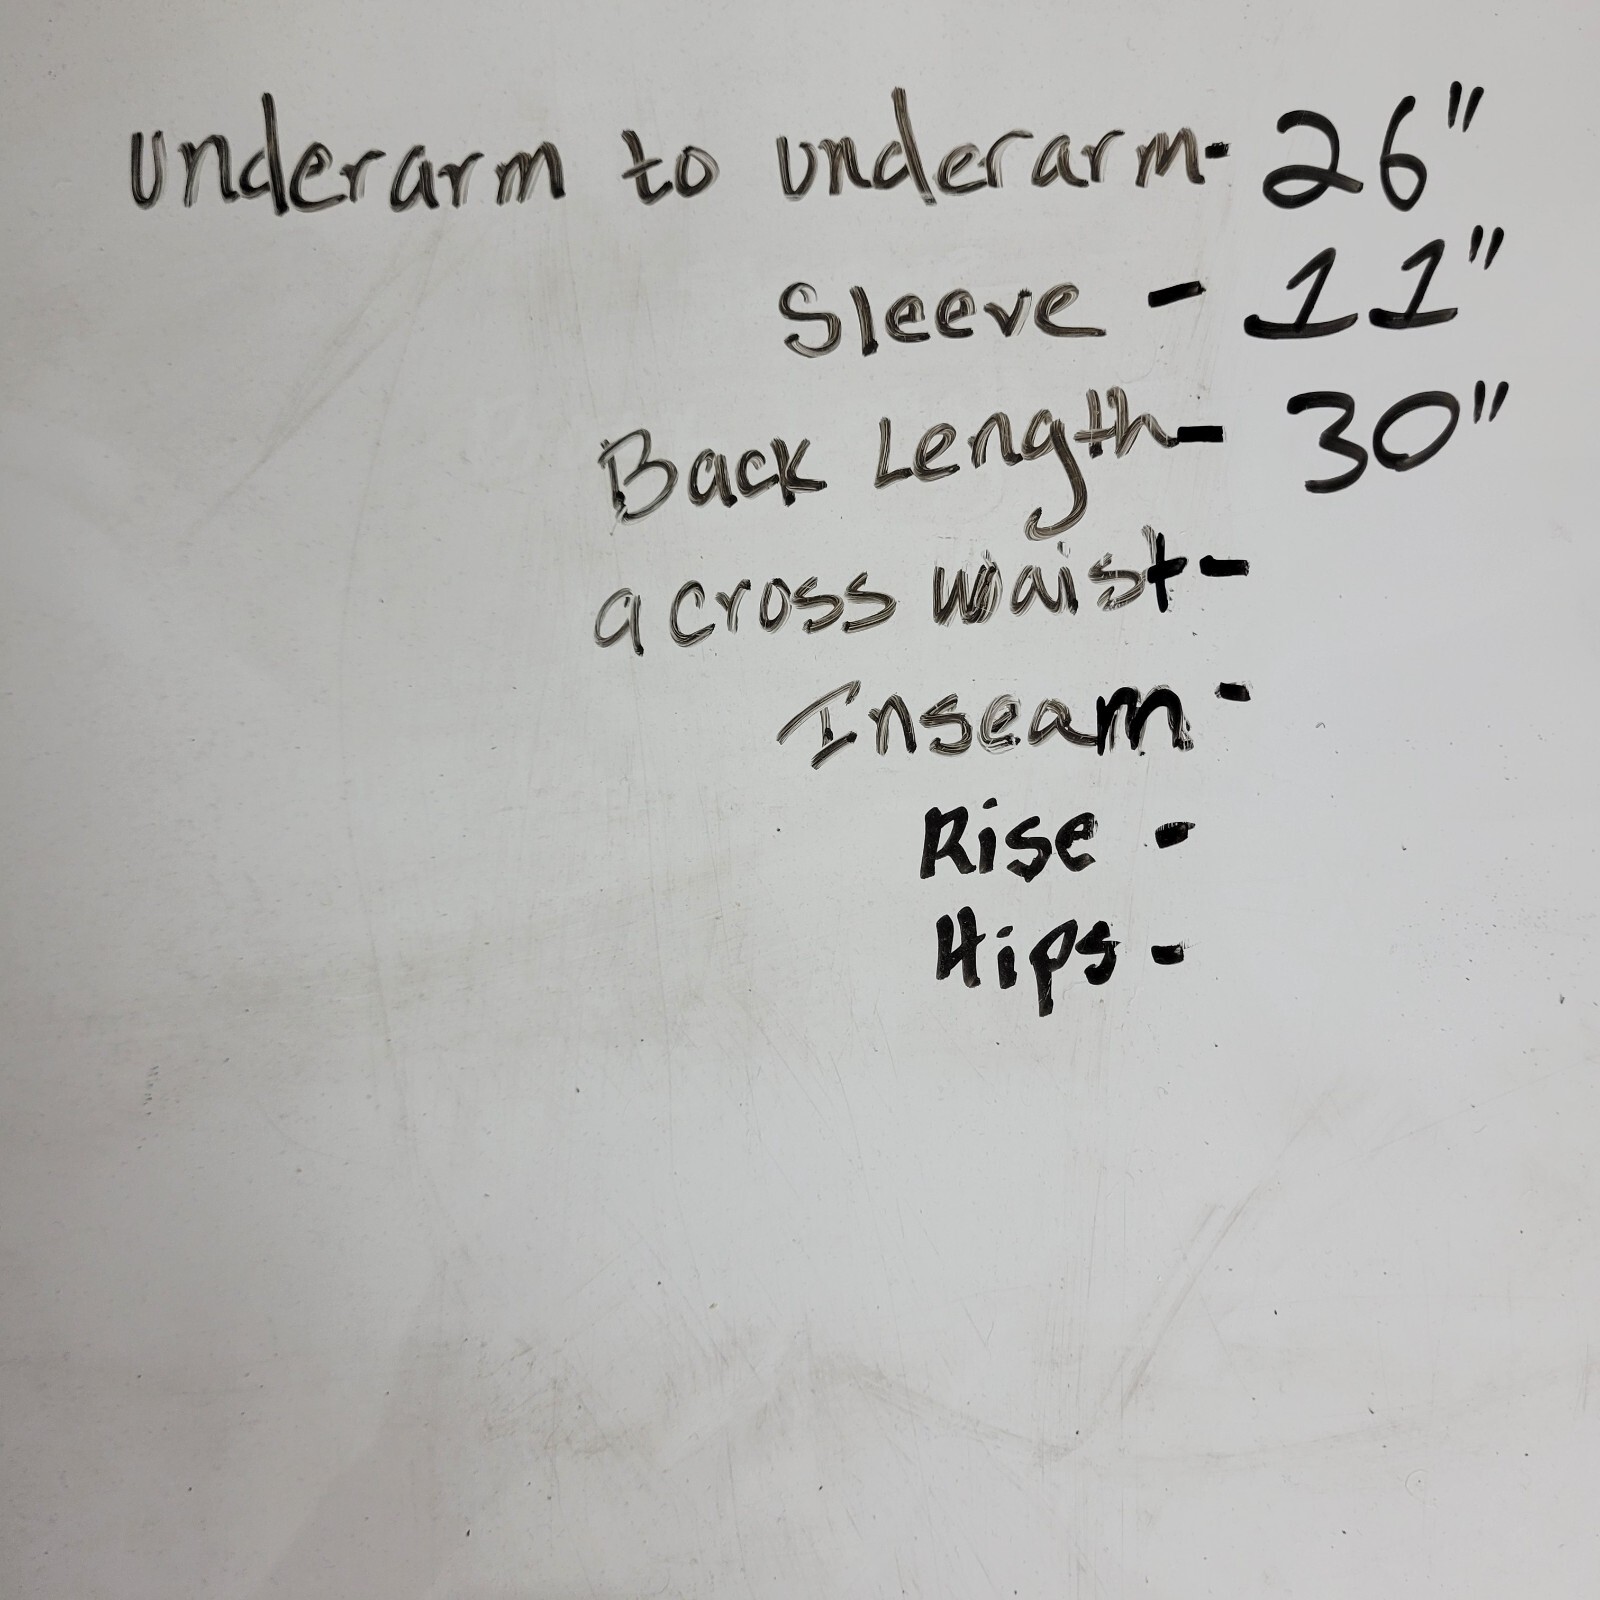 underarm to underarm- 26"
Sleeve - 11"
Back Length- 30"
across waist-
Inseam -
Rise -
Hips -